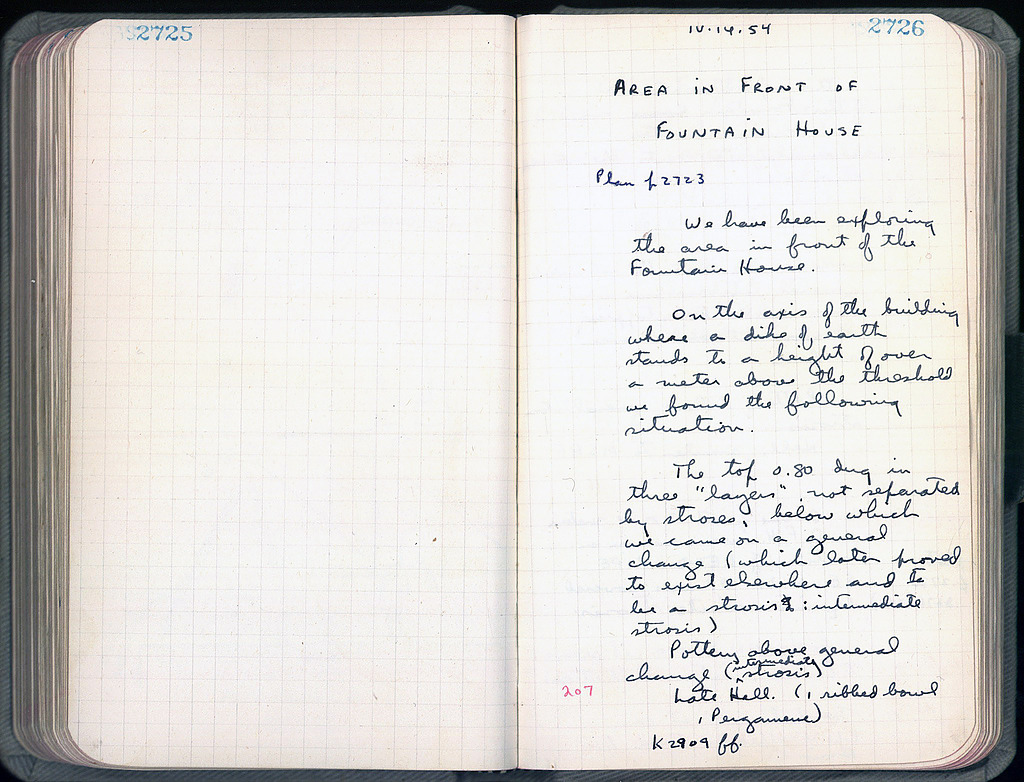 2725
IV.14.54
2726
AREA IN FRONT OF
FOUNTAIN HOUSE
Plan p 2723
We have been exploring
the area in front of the
Fountain House.
On the axis of the building
where a dike of earth
stands to a height of over
a meter above the threshold
we found the following
situation.
The top 0.80 dug in
three "layers" not separated
by stroses, below which
we came on a general
change (which later proved
to exist elsewhere and to
be a strosis : intermediate
strosis)
Pottery above general
change (intermediate strosis)
207
Late Hell. (1 ribbed bowl
1 Pergamene)
K 2909 ff.